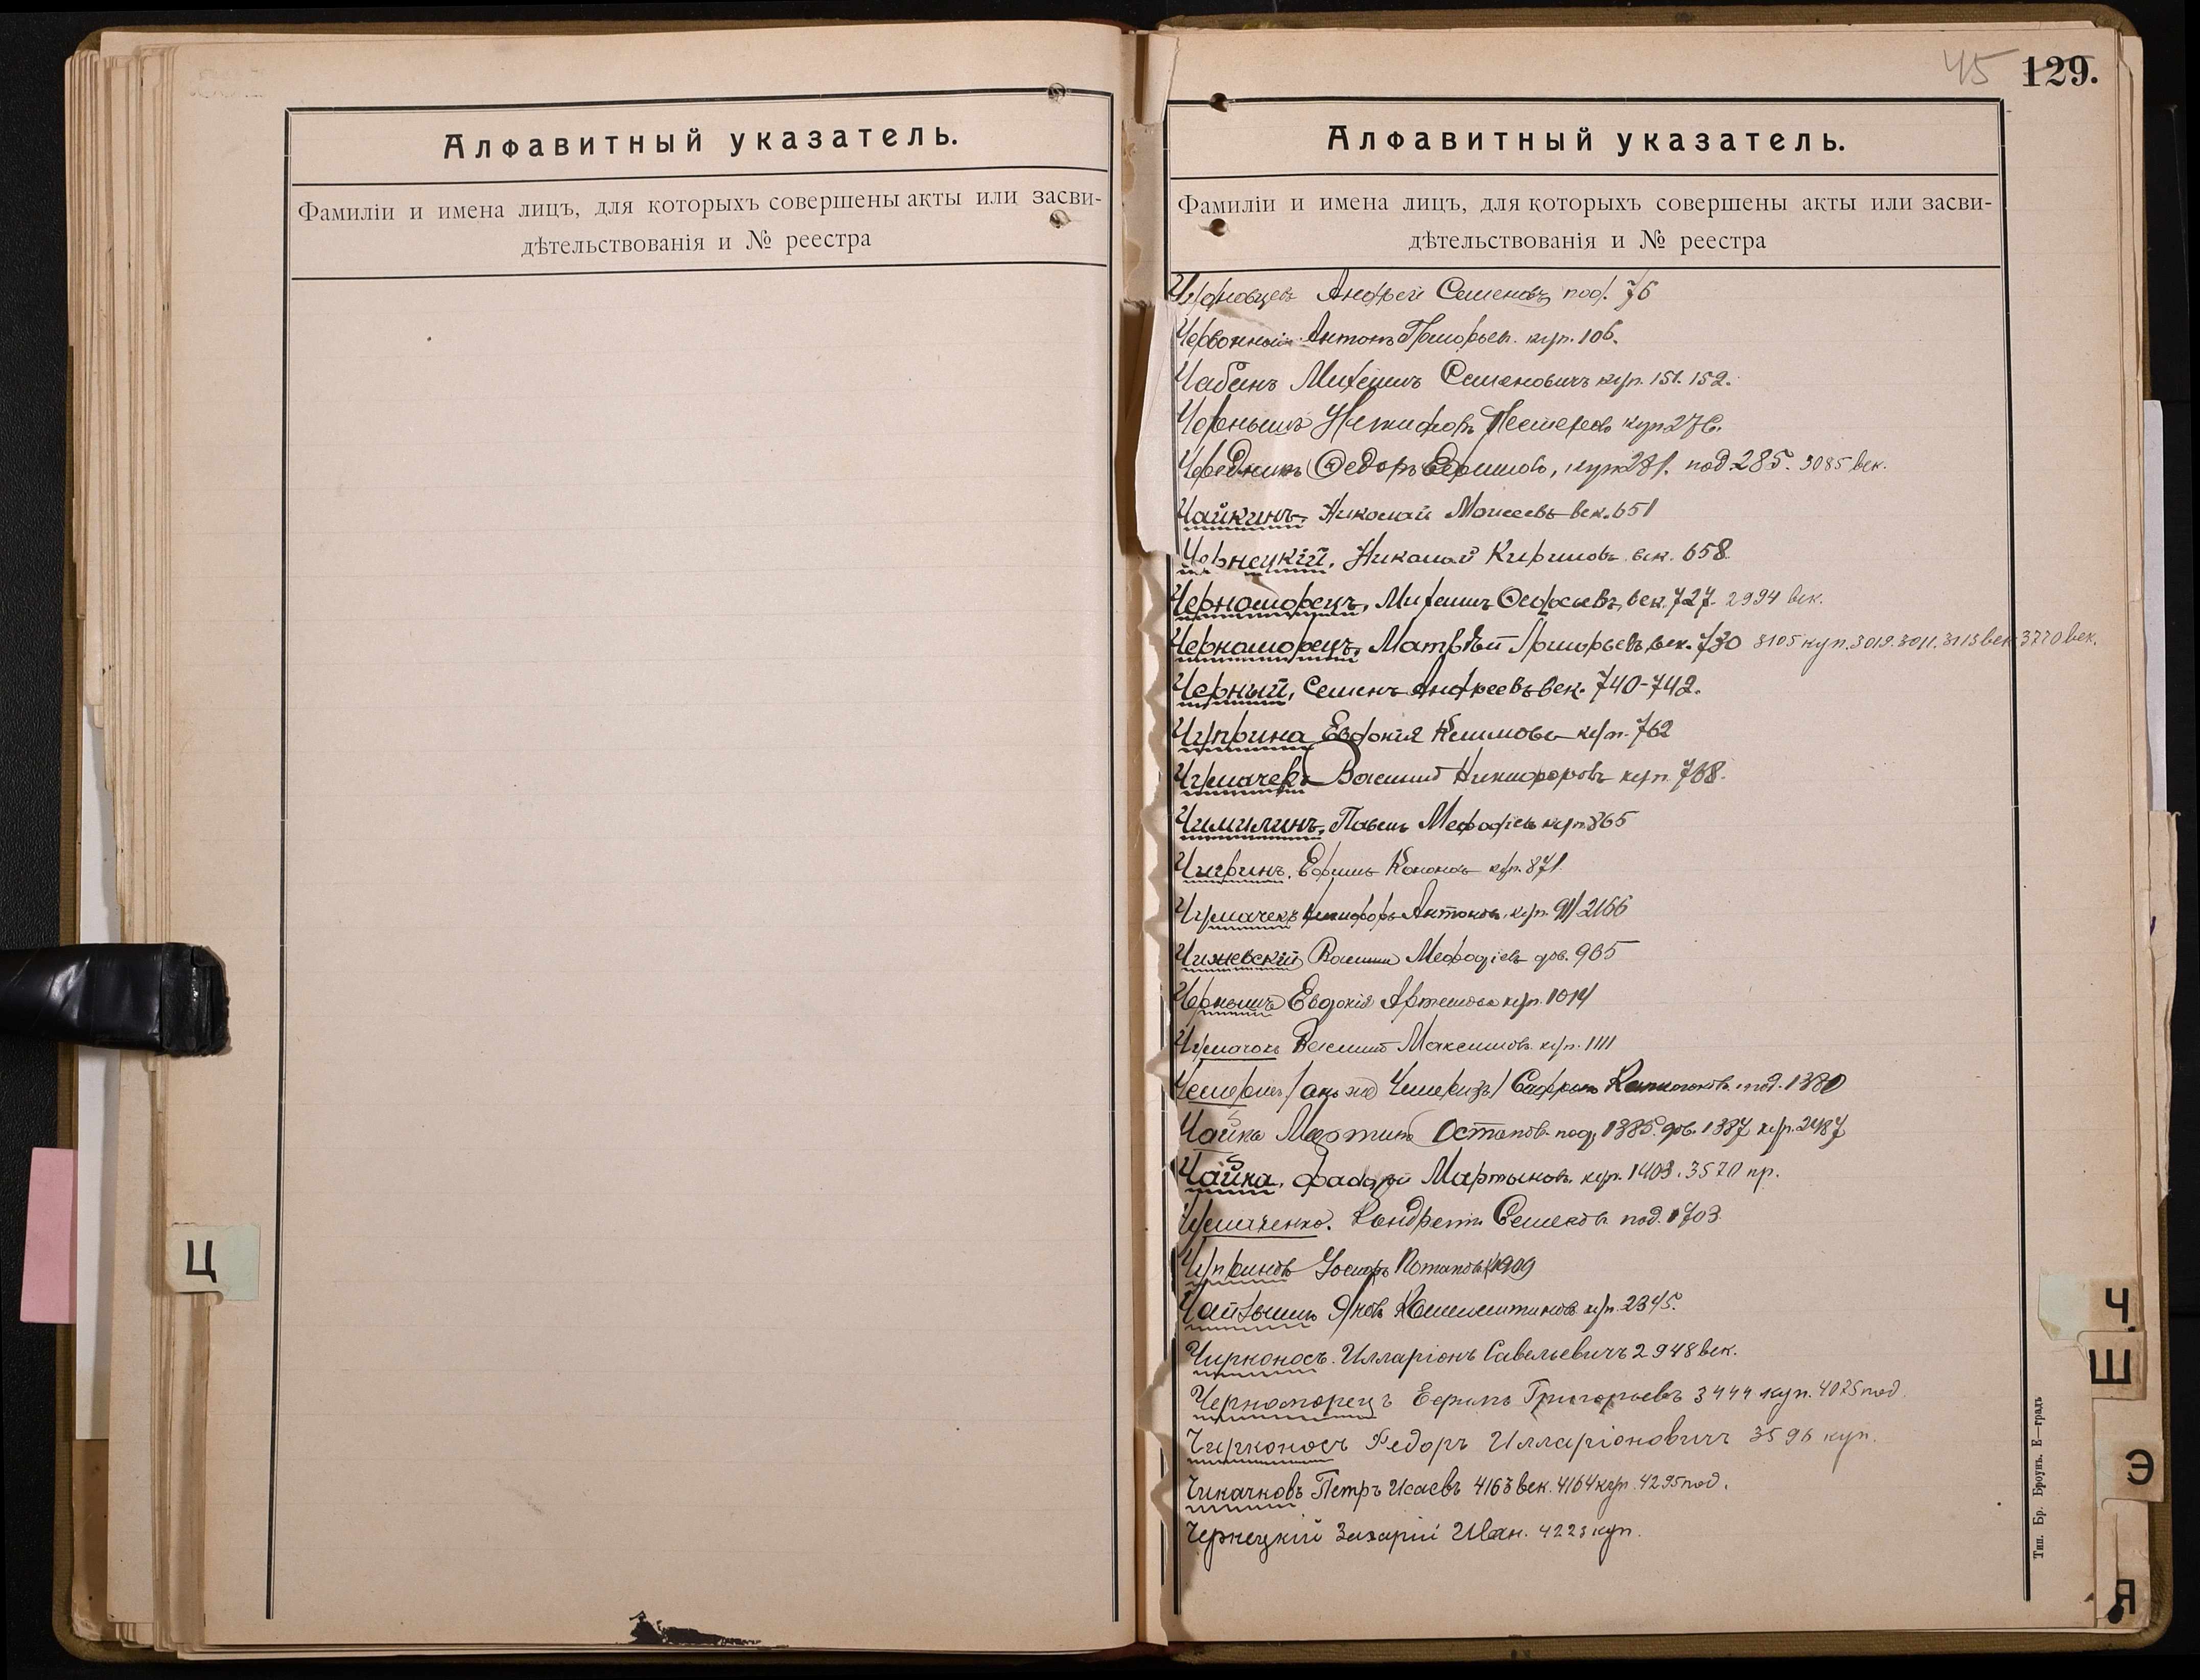 Алфавитный указатель.
Фамиліи и имена лицъ, для которыхъ совершены акты или засви-
дѣтельствованія и № реестра
Ц
45 129.
Алфавитный указатель.
Фамиліи и имена лицъ, для которыхъ совершены акты или засви-
дѣтельствованія и № реестра
Андрей Семеновъ под. 76
Червонный Антонъ Григорьев. куп. 106.
Чабанъ Михаилъ Семеновичъ куп. 151. 152.
Чернышъ Никифоръ куп 276.
Чередникъ Федоръ куп 281. под. 285. 3085 век.
Чайкинъ, Николай Моисеевъ век. 651
Чернецкій, Николай Кириловъ век. 658
Черноморецъ, Михаилъ Федосьевъ, век. 727. 2994 век.
Черноморецъ, Матвѣй Григорьевъ, век. 730 3105 куп. 3019. 3011. 3113 век 3770 век.
Черный, Семенъ Андреевъ век. 740-742.
Чуприна Евдокія Климова куп. 762
Чумачекъ Василій Никифоровъ куп. 768.
Чимилинъ, Павелъ Мефодіевъ куп. 865
Чигринъ. Ефимъ Кононовъ куп. 871
Чумачекъ Никифоръ Антоновъ, куп. 911 2166
Чижевскій Василій Мефодіевъ дов. 965
Чернышъ Евдокія Артемова куп. 1014
Чумачокъ Василій Максимовъ. куп. 1111
Чемерисъ / онъ же Чемеризъ / под. 1380
Чайка Мартинъ Остаповъ под. 1385. дов. 1387 куп. 2487
Чайка, Фадѣй Мартыновъ. куп. 1403. 3570 пр.
Чумаченко. Кондратъ Семеновъ под. 1703
Чуприновъ Іосифъ Потаповъ 1909
Яковъ Константиновъ куп. 2345.
Чирконосъ. Илларіонъ Савельевичъ 2948 век.
Черноморецъ Ефимъ Григорьевъ 3444 куп. 4075 под.
Чирконосъ Федоръ Илларіоновичъ 3596 куп.
Чикачковъ Петръ Исаевъ 4163 век. 4164 куп. 4295 под.
Чернецкій Захарій Иван. 4223 куп.
Тип. Бр. Броунъ. Е—градъ
Ч
Ш
Э
Я